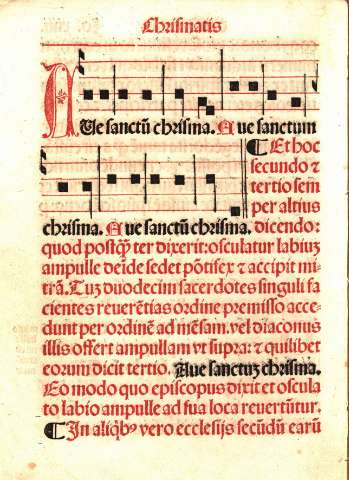 Chrismatis
AUe sanctũ chrisma. Aue sanctum
¶ Et hoc
secundo ⁊
tertio sem
per altius
chrisma. Aue sanctũ chrisma. dicendo:
quod postq̃ ter dixerit: osculatur labiuʒ
ampulle deĩde sedet põtifex ⁊ accipit mi-
trã. Tuʒ duodecim sacerdotes singuli fa
cientes reuerẽtias ordine premisso acce-
dunt per ordinẽ ad mẽsam. vel diaconus
illis offert ampullam vt supra: ⁊ quilibet
eorum dicit tertio. Aue sanctuʒ chrisma.
Eo modo quo episcopus dixit et oscula
to labio ampulle ad sua loca reuertũtur.
¶ In aliqbꝰ vero ecclesijs secũdũ earũ